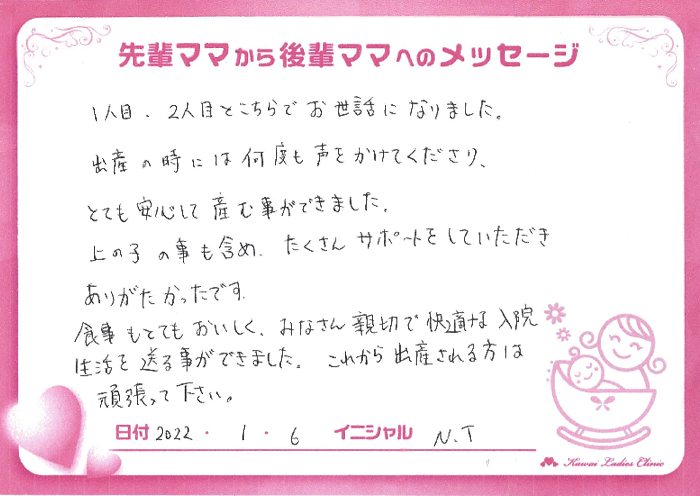 先輩ママから後輩ママへのメッセージ
1人目、2人目とこちらでお世話になりました。
出産の時には何度も声をかけてくださり、
とても安心して産む事ができました。
上の子の事も含め、たくさんサポートをしていただき
ありがたかったです。
食事もとてもおいしく、みなさん親切で快適な入院
生活を送る事ができました。これから出産される方は
頑張って下さい。
日付 2022・1・6 イニシャル N.T
Kawai Ladies Clinic